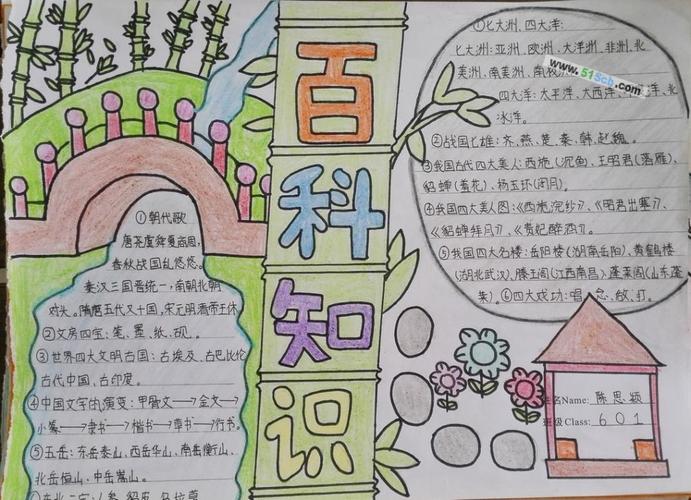 百科知识
①朝代歌
唐尧虞舜夏商周,
春秋战国乱悠悠。
秦汉三国晋统一,南朝北朝
对头。隋唐五代又十国,宋元明清帝王休
②文房四宝:笔、墨、纸、砚。
③世界四大文明古国:古埃及、古巴比伦
古代中国、古印度。
④中国文字的演变:甲骨文→金文→
小篆→隶书→楷书→草书→行书。
⑤五岳:东岳泰山、西岳华山、南岳衡山、
北岳恒山、中岳嵩山。
①七大洲、四大洋:
七大洲:亚洲、欧洲、大洋洲、非洲、北
美洲、南美洲、南极洲
www.51Scb.com
四大洋:太平洋、大西洋、洋、北
冰洋。
②战国七雄:齐、燕、楚、秦、韩、赵、魏。
③我国古代四大美人:西施(沉鱼)、王昭君(落雁)、
貂蝉(羞花)、杨玉环(闭月)。
④我国四大美人图:《西施浣纱》、《昭君出塞》、
《貂蝉拜月》、《贵妃醉酒》。
⑤我国四大名楼:岳阳楼(湖南岳阳)、黄鹤楼
(湖北武汉)、滕王阁(江西南昌)、蓬莱阁(山东蓬
莱)。⑥四大戏功:唱、念、做、打。
名Name:陈思颖
班级Class:601